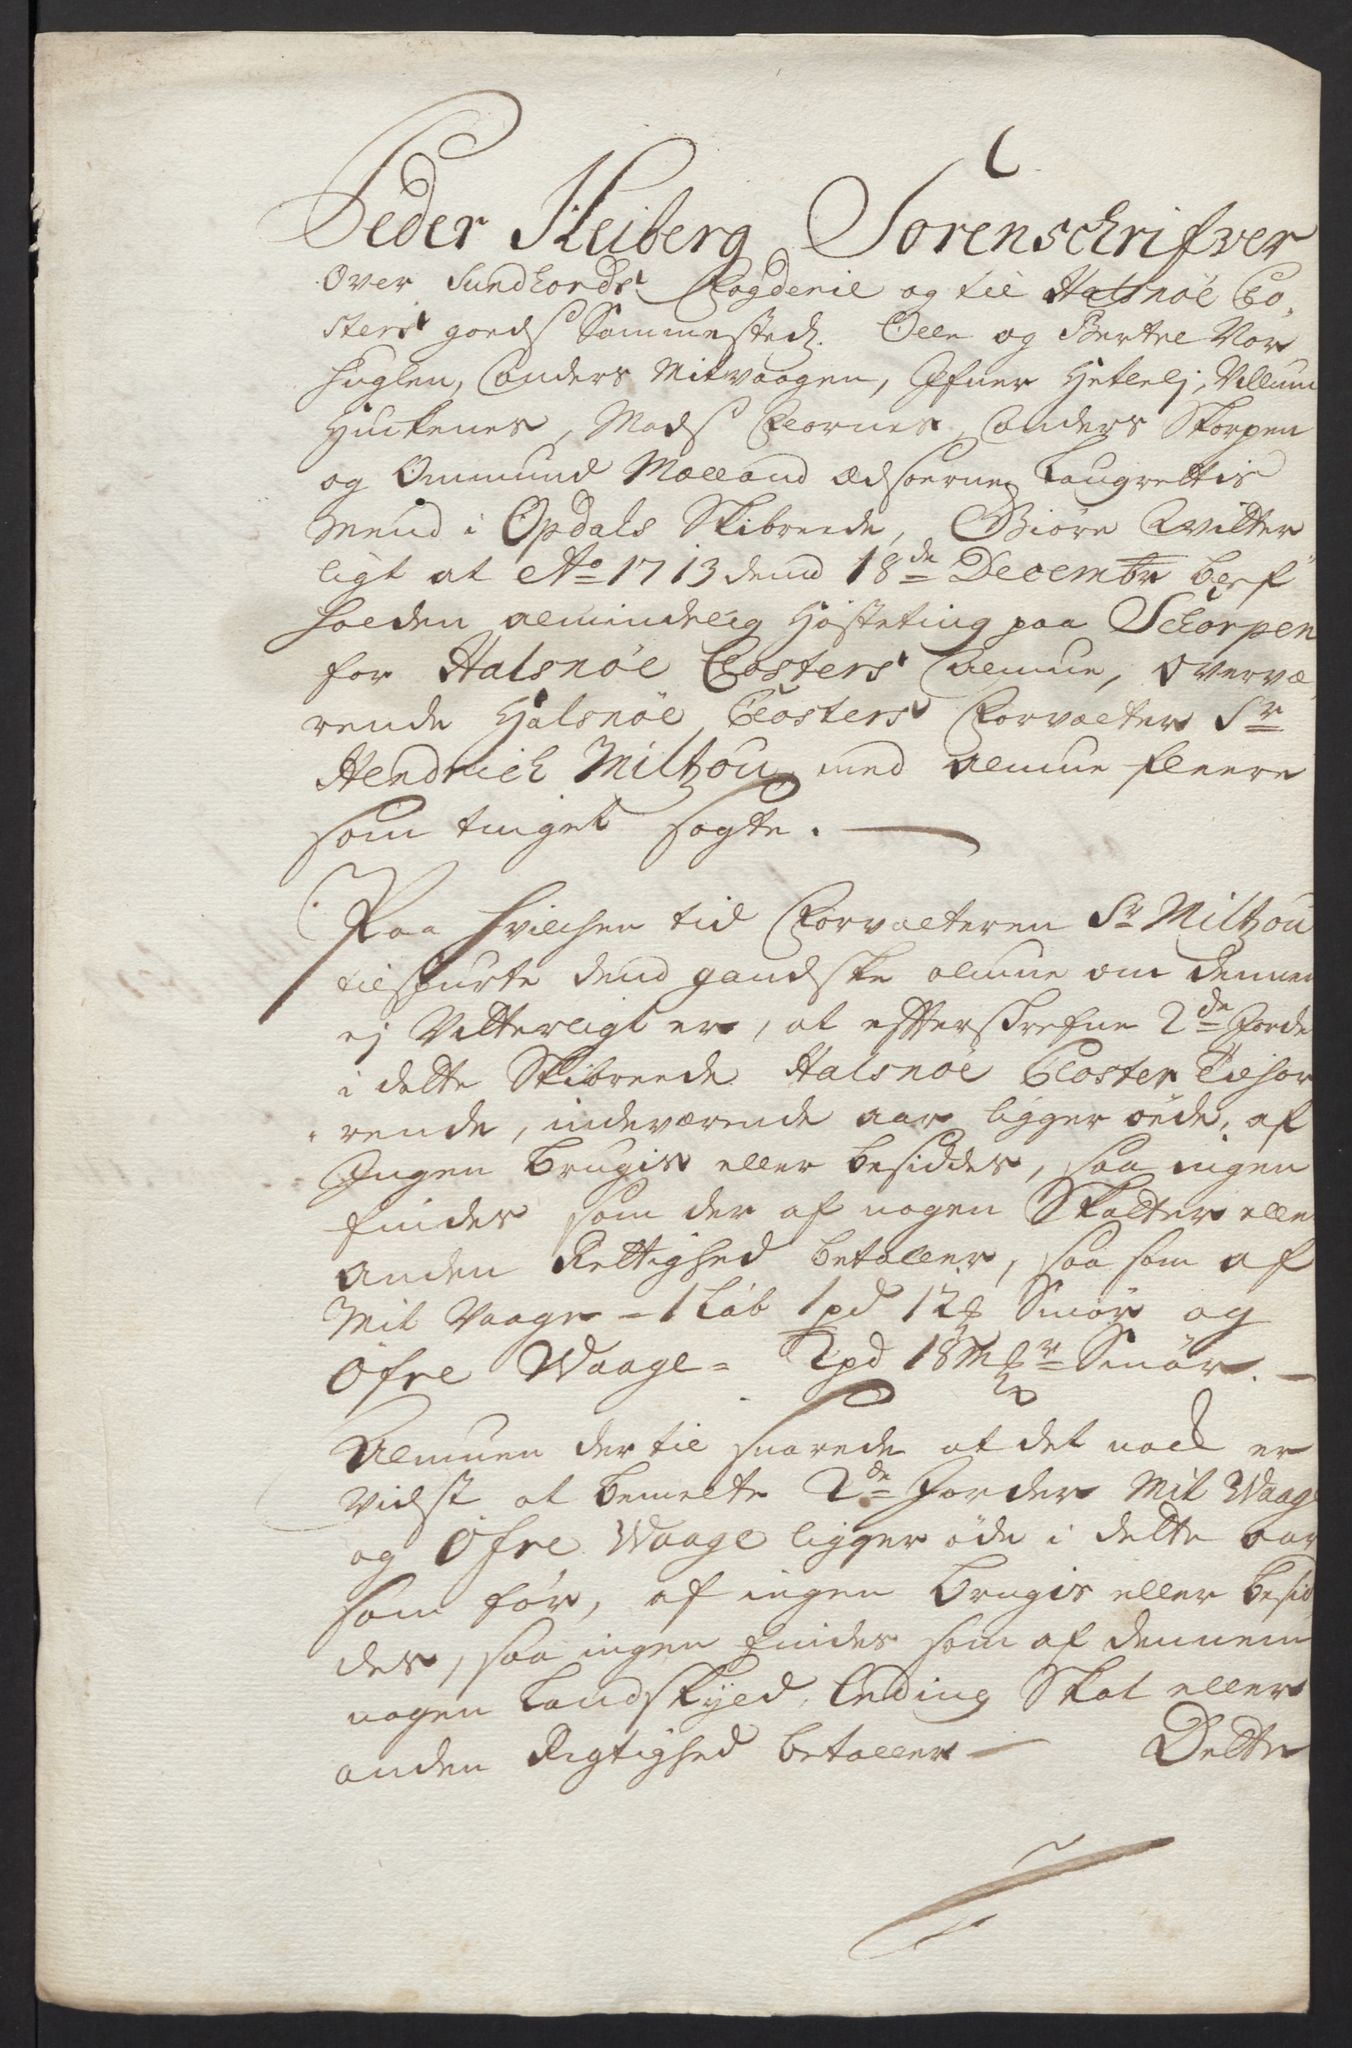 Peder Heiberg Sorenschrifver
Over Sundhords Fogderie og til Halsnöe Clo,
sters goeds Sammestedz. Olle og Bertel Nor
huglen, Anders Mitvaagen, Ifuer Hetlelj, Villum
Huckenes, Mads Flornes, Anders Skorpen
og Ommund Mælland Edsoerne Laugrettis
mend i Opdals Skibreede, Giöre Witter
ligt at Ao 1713 dend 18de Decembr blef
holden almindelig Hösteting paa Schorpen
for Halsnöe Closters Almue, overvæ,
rende Halsnöe Closters Forvalter Sr
Hendrich Miltzou, med almue fleere
som tinget sögte.
Paa hvilchen tid Forvalteren Sr Miltzou
tilspurte dend gandske almue om dennem
ej Vitterligt er, at effterskrefne 2de Jorder
i dette Skibreede Halsnöe Closter Tilhör
rende, indeværende aar ligger öede, af
Ingen brugis eller besiddes, saa ingen
findes som der af nogen Skatter eller
anden Rettighed betaller, saa som af
Mit Vaage - 1 Löb 1 pd 12 Smör og
Öfre Waage = 2 pd 18 mkr Smör.
Almuen der til svarede at det noch er
vidst at bemelte 2de Jorder Mit Waage
og Öfre Waage ligger öde i dette aar
som för, af ingen brugis eller besid
des, saa ingen findes som af dennem
nogen Landskyld, Leding Skat eller
anden Rigtighed betaller Dette